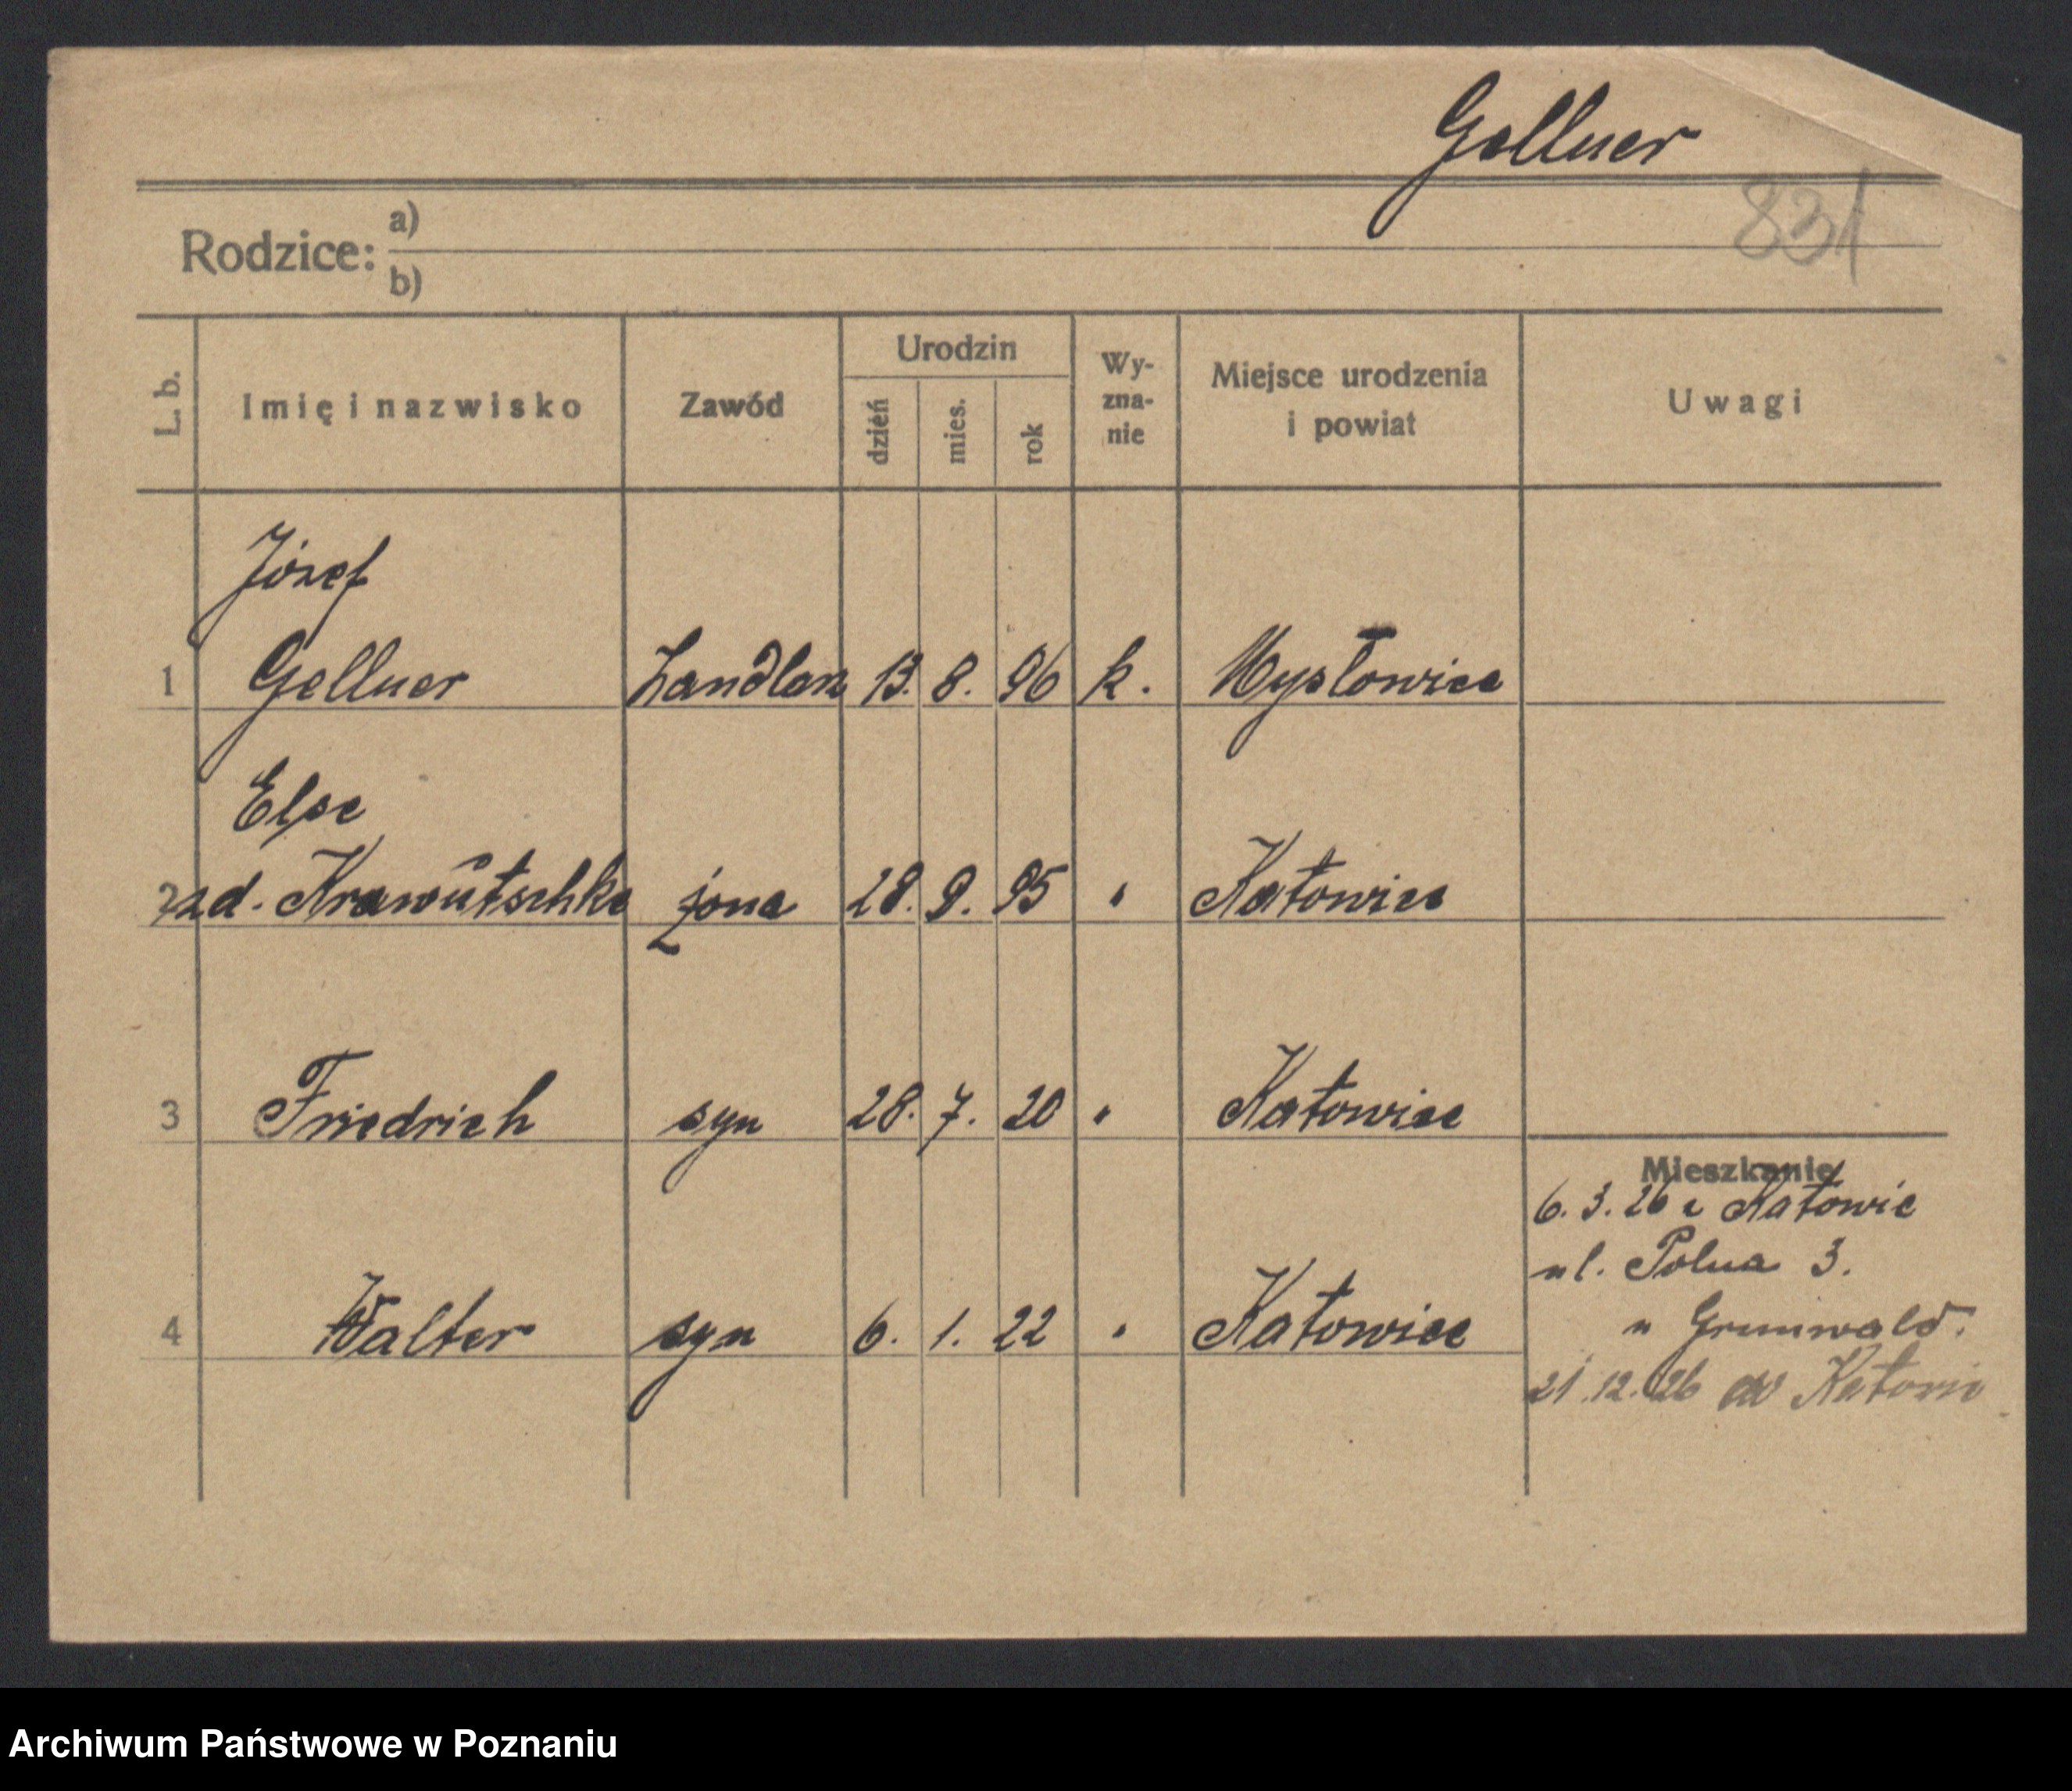 Gellner
831
Rodzice: a)
b)
L. b. Imię i nazwisko Zawód Urodzin dzień mies. rok Wy-zna-nie Miejsce urodzenia i powiat Uwagi
Józef
1 Gellner handlarz 13. 8. 96 k. Mysłowice
Else
2 zd. Krawutschke żona 28. 9. 95 " Katowice
3 Friedrich syn 28. 7. 20 " Katowice
Mieszkanie
6. 3. 26 z Katowic
ul. Polna 3.
4 Walter syn 6. 1. 22 " Katowice
u Grunwald.
21.12.26 do Katowic
Archiwum Państwowe w Poznaniu